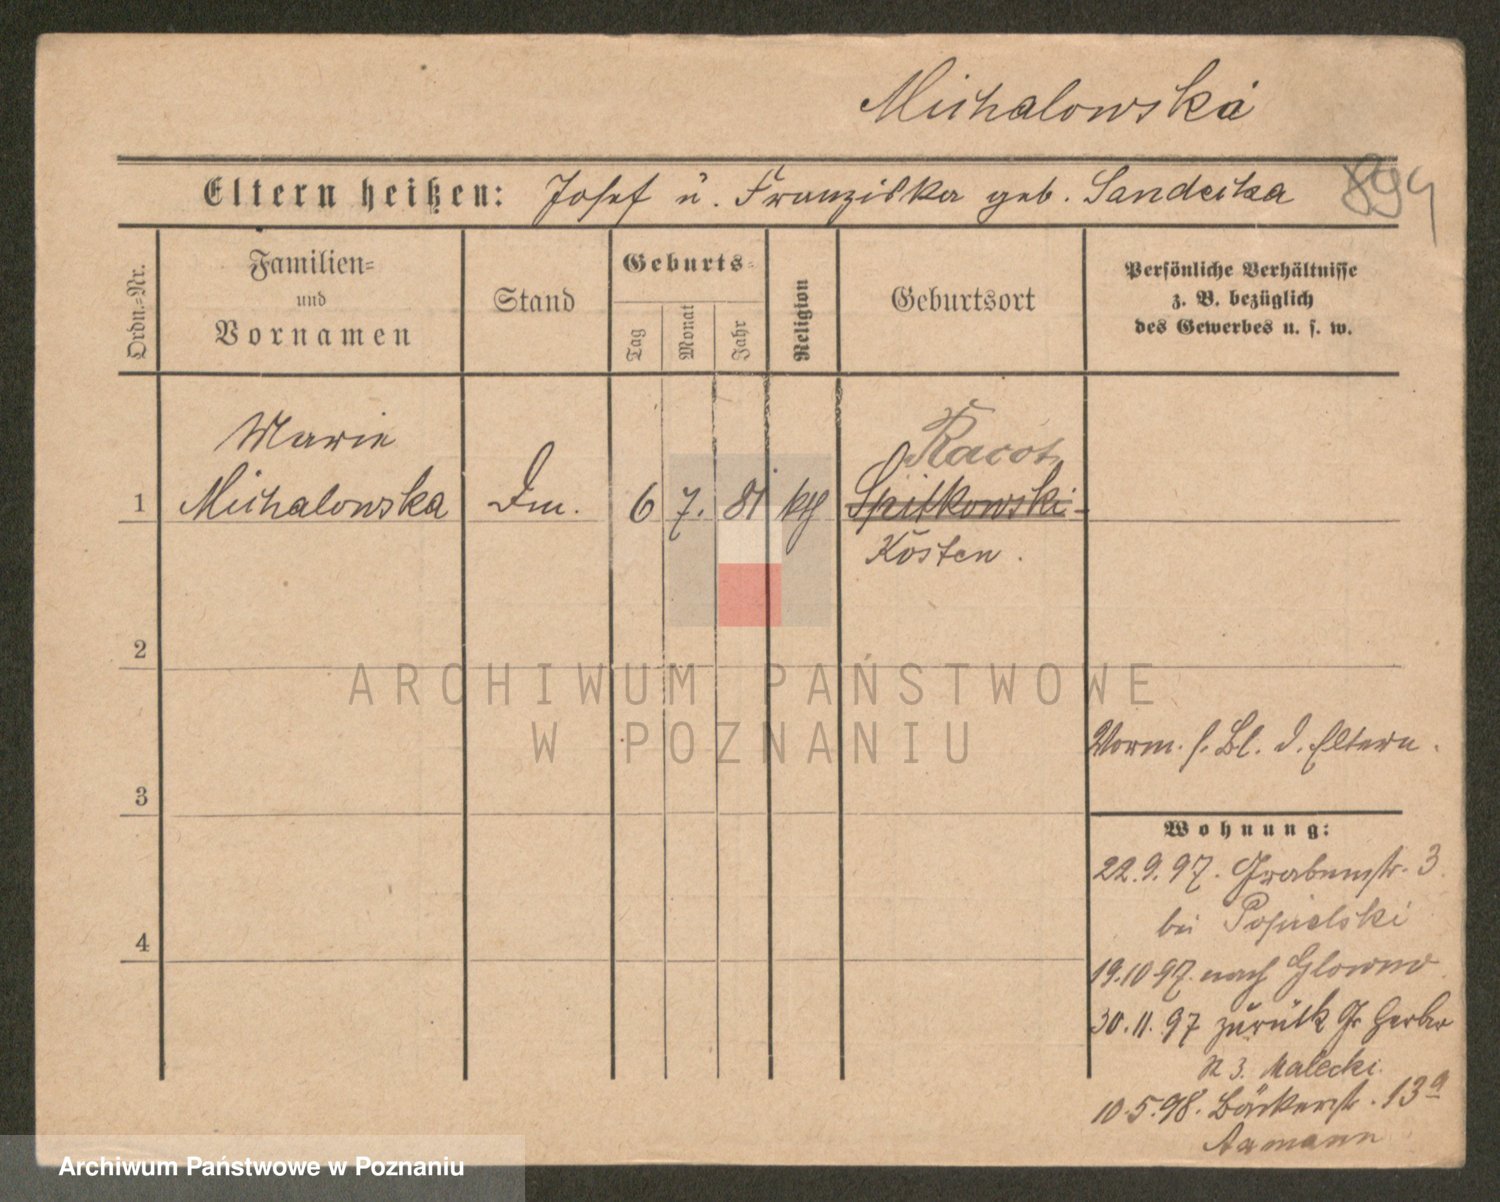 Michalowska
Eltern heißen: Josef u. Franziska geb. Sandecka
Ordn.=Nr.
Familien=
und
Vornamen
Stand
Geburts=
Tag
Monat
Jahr
Religion
Geburtsort
Persönliche Verhältnisse
z. B. bezüglich
des Gewerbes u. s. w.
Marie
Racot
1 Michalowska Dm. 6 7. 81 kth Spitkowski
Kosten.
2
Vorm. s. Bl. d. Eltern.
3
Wohnung:
22.9.97. Grabenstr. 3.
bei Popielski
4
19.10 97. nach Glowno
30.11.97 zurück Gr Gerber
St 3. Malecki.
10.5.98. Bäckerstr. 13a
ARCHIWUM PAŃSTWOWE
W POZNANIU
Archiwum Państwowe w Poznaniu